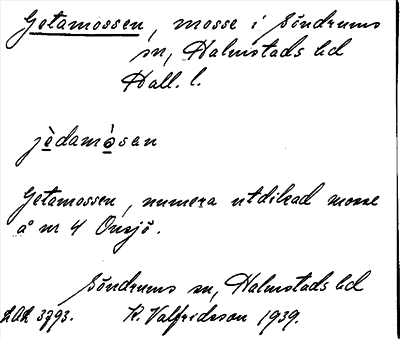 Getamossen, mosse i Söndrums
sn, Halmstads hd
Hall. l.
jèdamòsan
Getamossen, numera utdikad mosse
å nr 4 Onsjö.
Söndrums sn, Halmstads hd
LAL 3793. R. Valfridsson 1939.